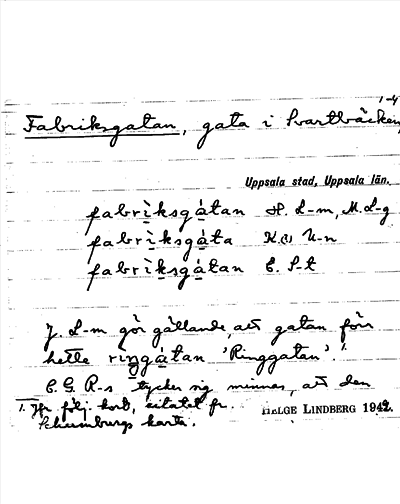 1-4
Fabriksgatan, gata i Svartbäcken,
Uppsala stad, Uppsala län.
fabrìksgàtan H. L-m, M. L-g
fabrìksgàta K. U-n
fabrìksgàtan E. S-t
J. L-m gör gällande, att gatan förr
hette ringgàtan 'Ringgatan'.¹
E. G. R-s tycker sig minnas, att den
1. Jfr följ. kort, citatet fr.
Schumburgs karta.
HELGE LINDBERG 1942.